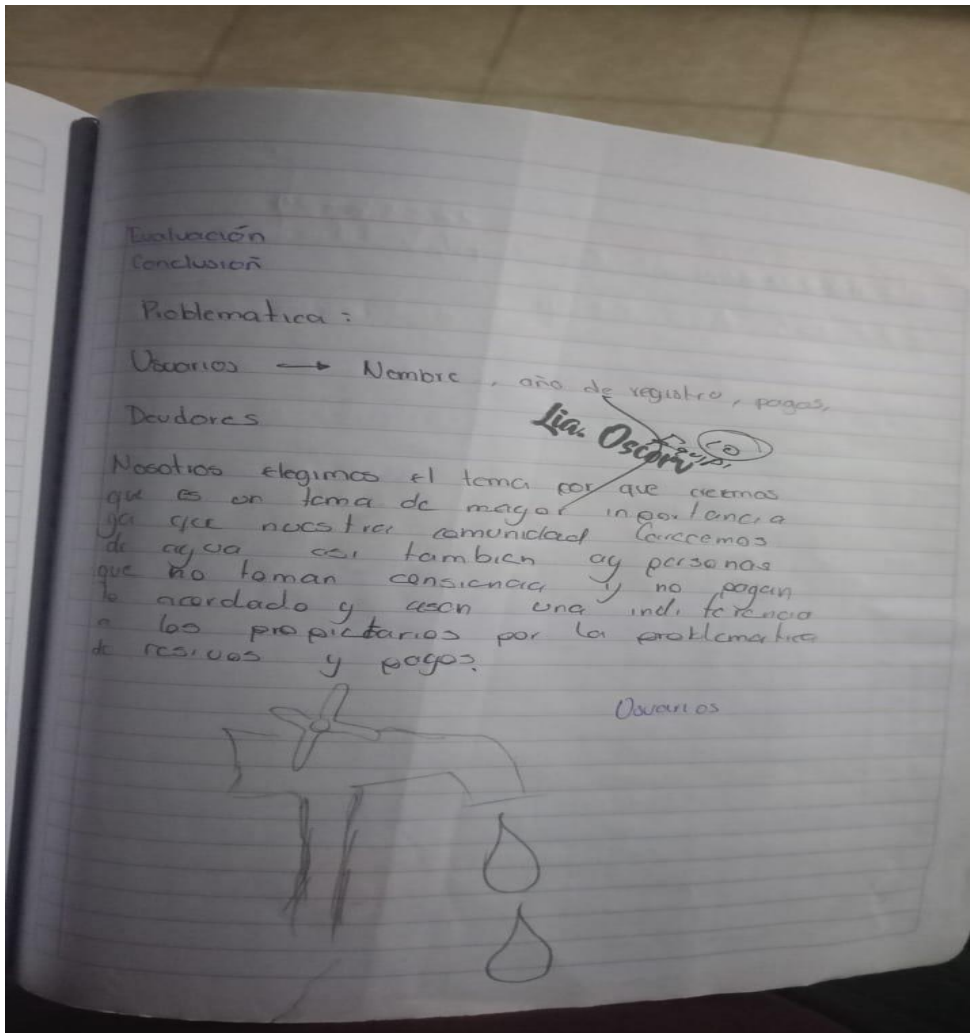 Evaluación
Conclusión
Problematica :
Usuarios → Nombre, año de registro, pagos,
Deudores
Lia. Oscar
Nosotros elegimos el tema por que creemos
que es un tema de mayor inportancia
ya que nuestra comunidad Carecemos
de agua asi tambien ay personas
que no toman consiencia y no pagan
lo acordado y asen una indiferencia
a los propietarios por la problematica
de resivos y pagos.
Usuarios